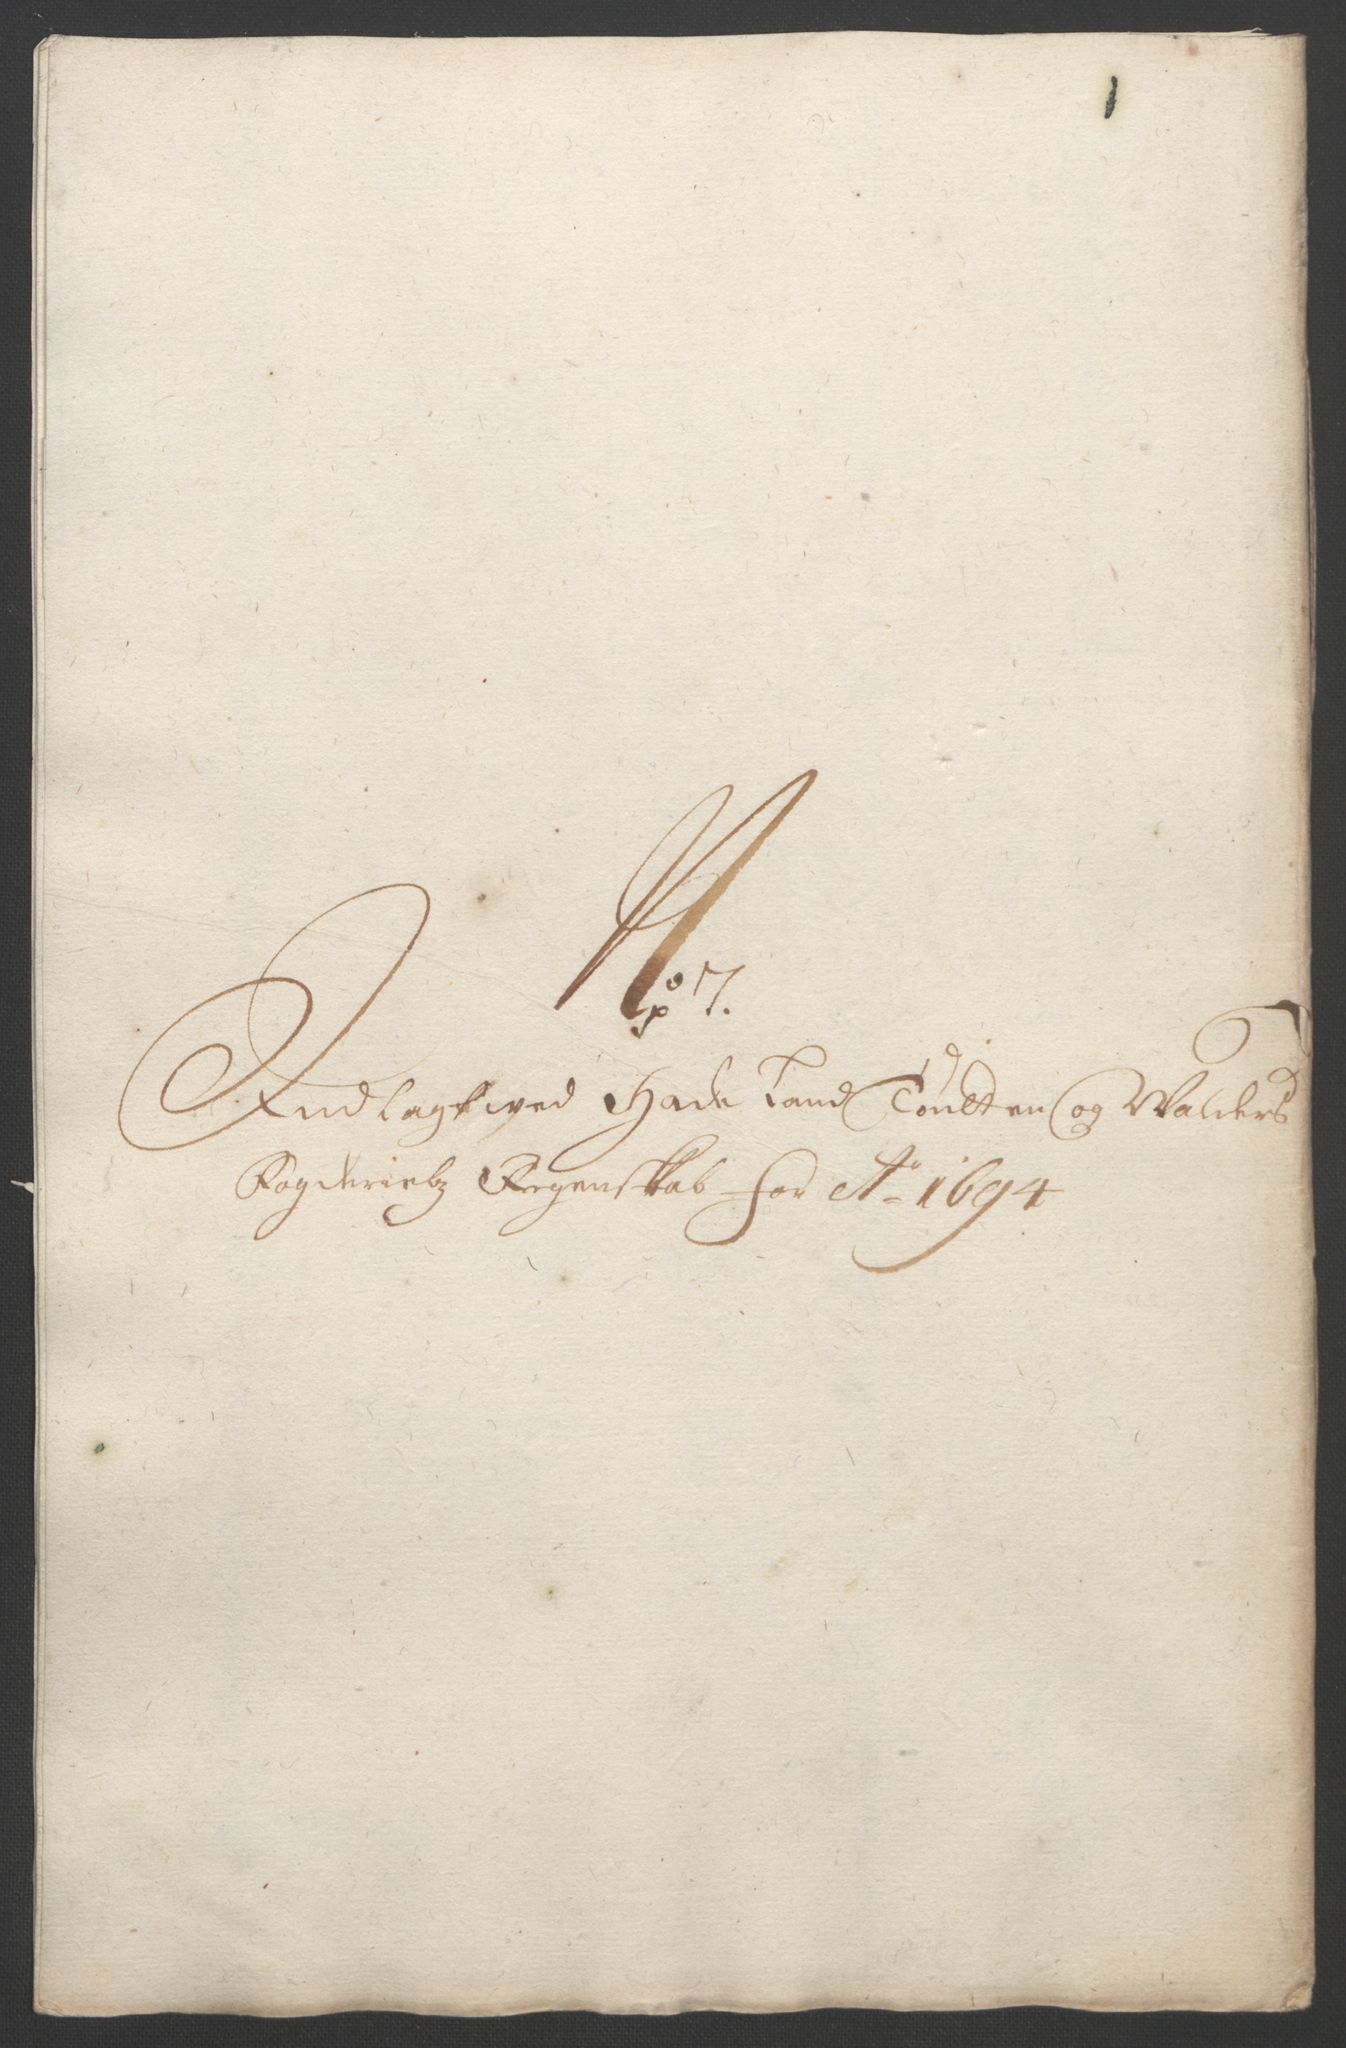 No 7.
Indlagt wed Hade Land Toutten og Walders
Fogderietz Regenskab for Ao 1694